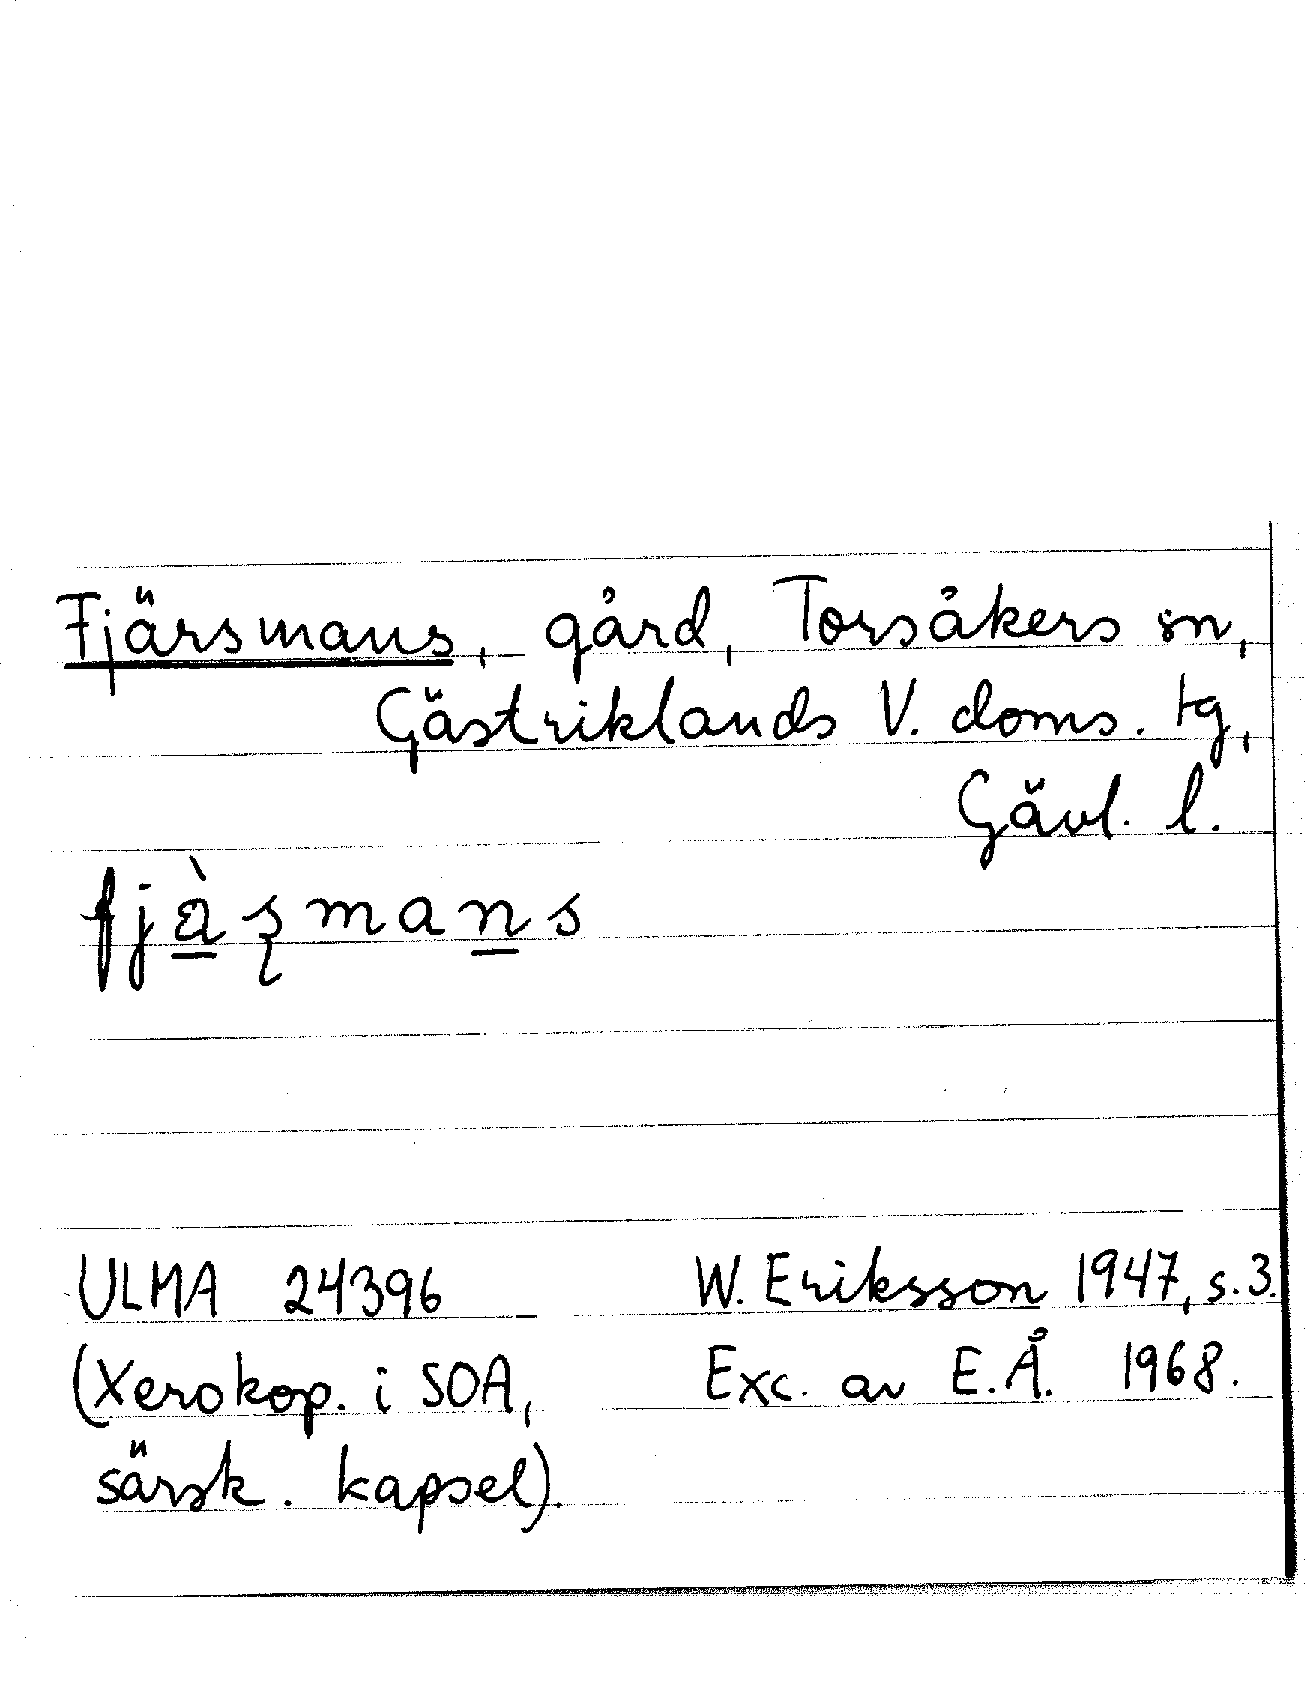 Fjärsmans, gård, Torsåkers sn,
Gästriklands V. doms. tg,
Gävl. l.
fjä̀ʂmans
ULMA 24396 W. Eriksson 1947, s. 3.
(Xerokop. i SOA, Exc. av E.Å. 1968.
särsk. kapsel).